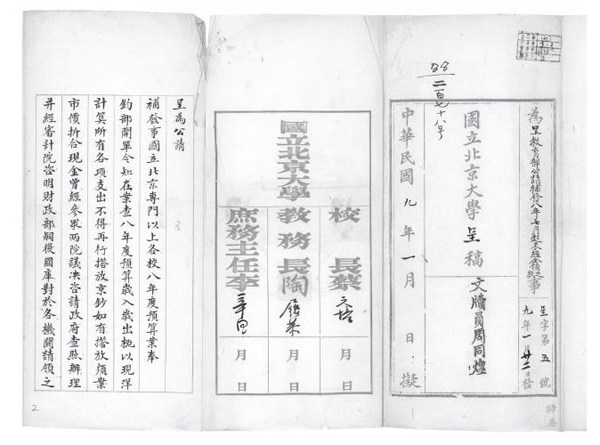 呈字第五號
九年一月廿二日發
國立北京大學呈稿
文牘員周同煌
二百七十八号
中華民國九年一月 日擬
國立北京大學
校長蔡元培 月 日
教務長陶履恭 月 日
庶務主任李辛白 月 日
呈為公請
補發事國立北京專門以上各校八年度預算業奉
鈞部開單令知在案查八年度預算歲入歲出概以現洋
計算所有各項支出不得再行搭放京鈔如有搭放須
市價折合現金曾經參眾兩院議決咨請政府查照辦理
并經審計院咨明財政部嗣後國庫對於各機關請領之
2